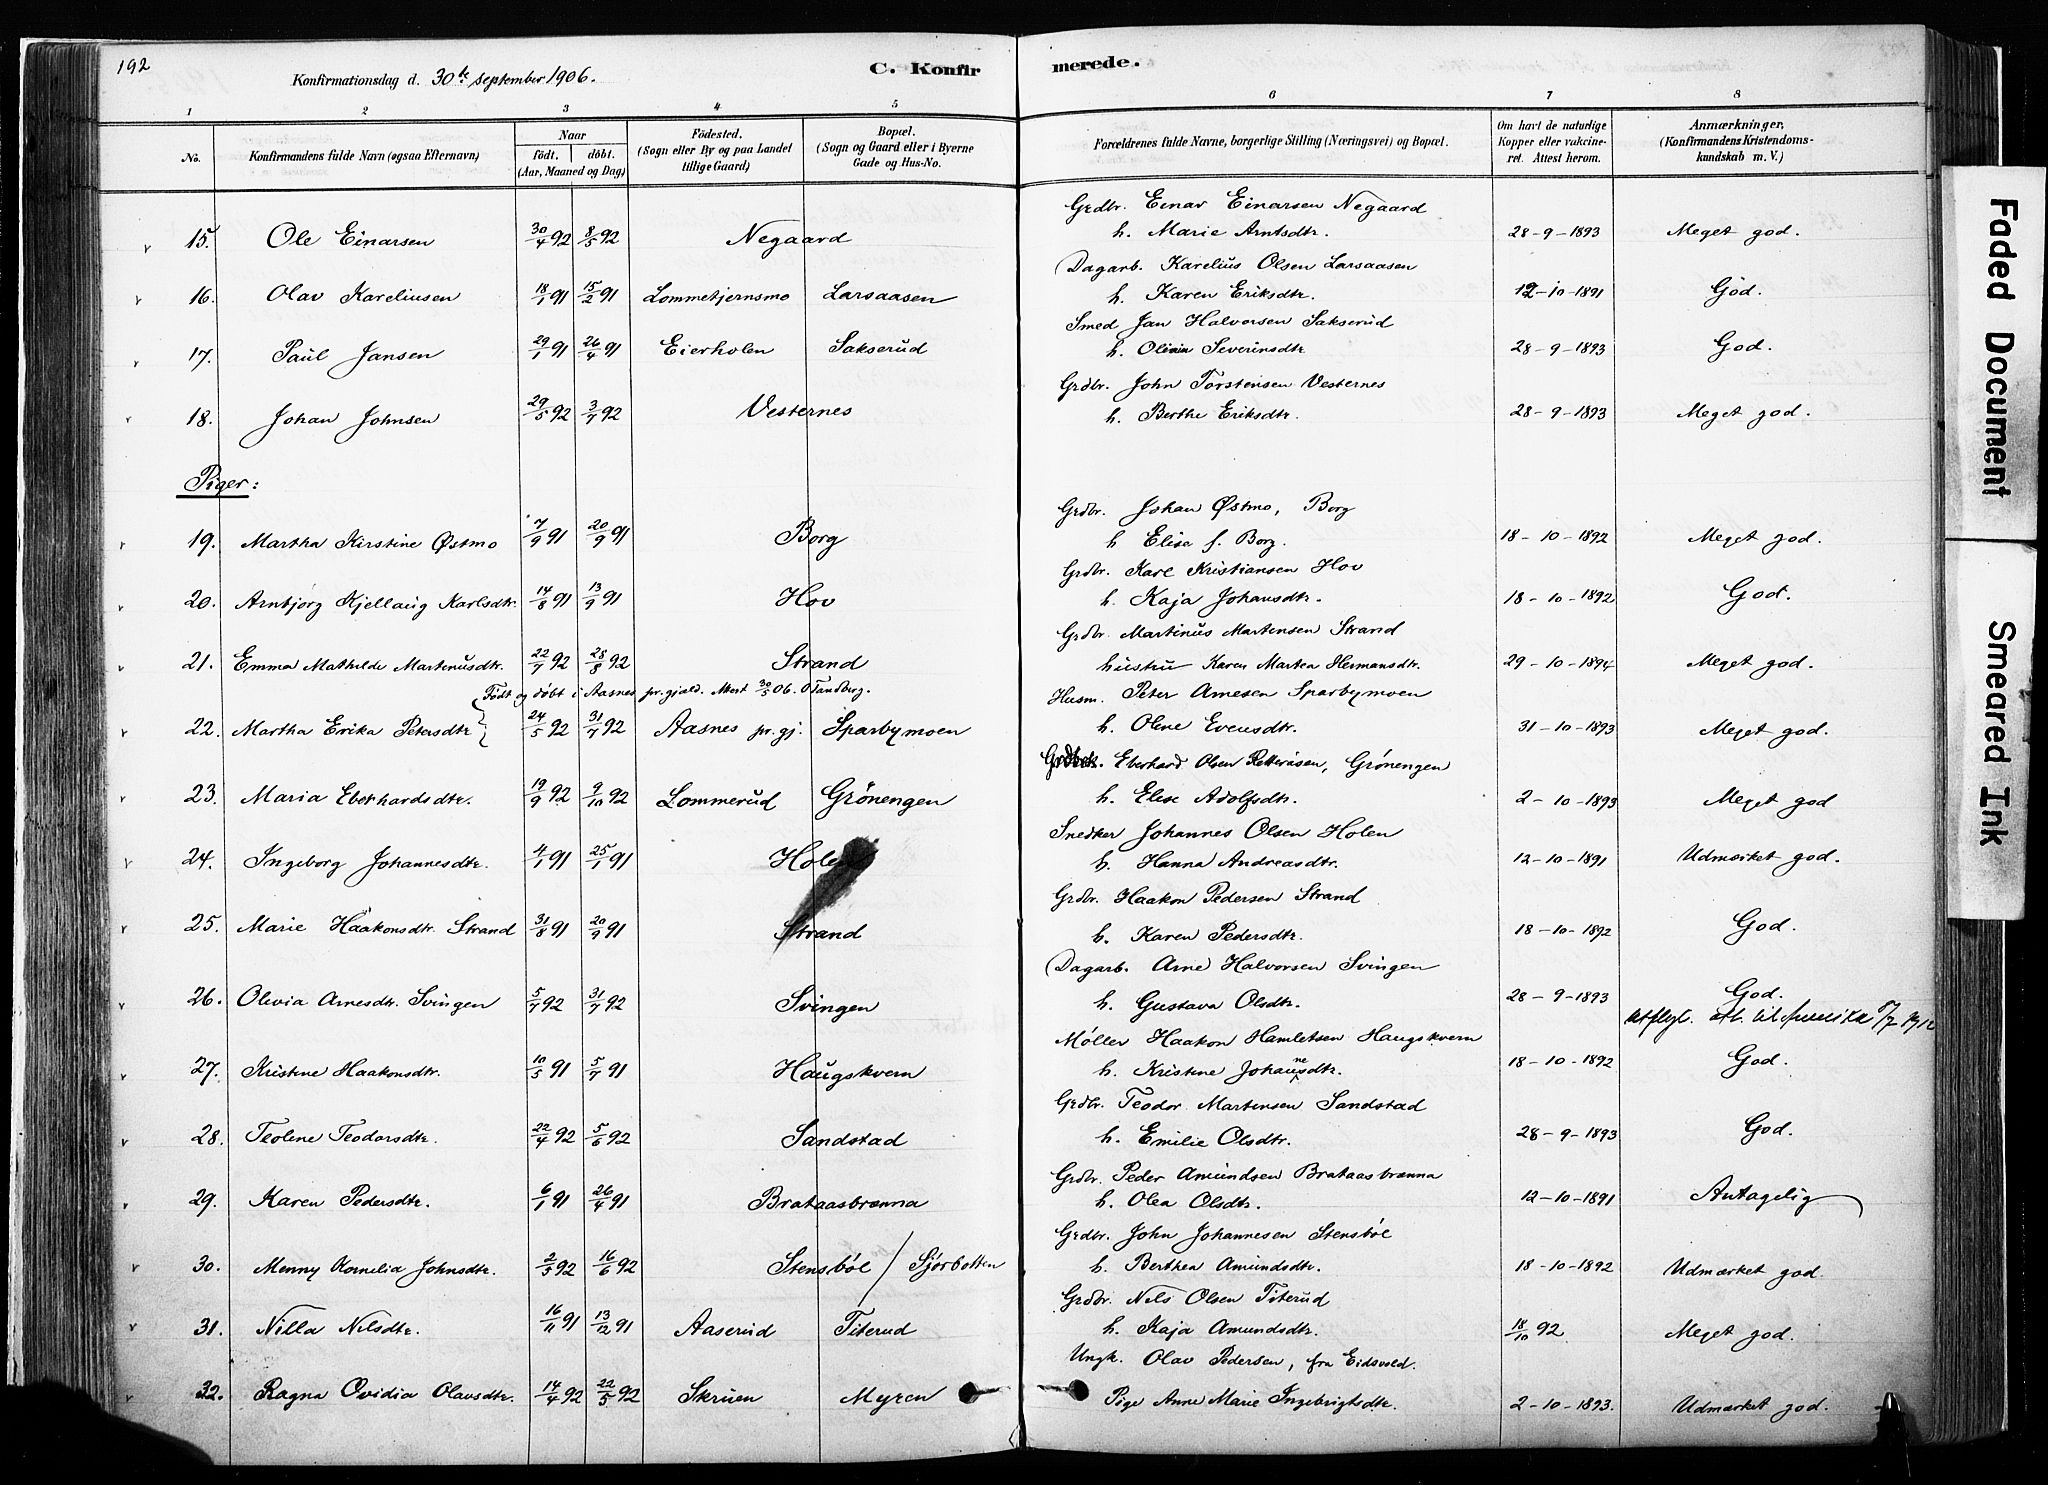 192
Konfirmationsdag d. 30te september 1906.
C. Konfirmerede.
1 2 3 4 5 6 7 8
No. Konfirmandens fulde Navn (ogsaa Efternavn) Naar født, døbt. (Aar, Maaned og Dag) Fødested. (Sogn eller By og paa Landet tillige Gaard) Bopæl. (Sogn og Gaard eller i Byerne Gade og Hus-No. Forældrenes fulde Navne, borgerlige Stilling (Næringsvei) og Bopæl. Om havt de naturlige Kopper eller vakcineret. Attest herom. Anmærkninger, (Konfirmandens Kristendomskundskab m. V.)
Grdbr. Einar Einarsen Negaard
15. Ole Einarsen 30/4 92 8/5 92 Negaard h. Marie Arntsdtr. 28-9-1893 Meget god.
Dagarb. Karelius Olsen Larsaasen
16. Olav Kareliusen 18/1 91 15/2 91 Lommetjernsmo Larsaasen h. Karen Eriksdtr. 12-10-1891 God.
Smed Jan Halvorsen Sakserud
17. Paul Jansen 29/1 91 26/4 91 Eierholen Sakserud h. Olivia Severinsdtr 28-9-1893 God.
Grdbr. John Torstensen Vesternes
18. Johan Johnsen 29/5 92 3/7 92 Vesternes h. Berthe Eriksdtr. 28-9-1893 Meget god.
Piger:
Grdbr. Johan Østmo, Borg
19. Martha Kirstine Østmo 7/9 91 20/9 91 Borg h Elise f. Borg. 18-10-1892 Meget god.
Grdbr. Karl Kristiansen Hov
20. Arnbjørg Kjellaug Karlsdtr. 14/8 91 13/9 91 Hov h. Kaja Johansdtr. 18-10-1892 God.
Grdbr. Martinus Martensen Strand
21. Emma Mathilde Martinusdtr. 22/7 92 28/8 92 Strand hustru Karen Martea Hermansdtr. 29-10-1894 Meget god.
Født og døbt i Aasnes pr.gjæld. Attest 30/5 06. O Tandberg.
Husm. Peter Arnesen Sparbymoen
22. Martha Erika Petersdtr 24/5 92 31/7 92 Aasnes pr.gj. Sparbymoen h. Oline Evensdtr. 31-10-1893 Meget god.
Eberhard Olsen Retteråsen, Grønengen
23. Maria Eberhardsdtr. 19/9 92 9/10 92 Lommerud Grønengen h. Elise Adolfsdtr. 2-10-1893 Meget god
Snedker Johannes Olsen Holen
24. Ingeborg Johannesdtr. 4/1 91 25/1 91 Holen h. Hanna Andreasdtr. 12-10-1891 Udmærket god.
Grdbr. Haakon Pedersen Strand
25. Marie Haakonsdtr. Strand 31/8 91 20/9 91 Strand h. Karen Pedersdtr. 18-10-1892 God.
Dagarb. Arne Halvorsen Svingen
26. Olivia Arnesdtr. Svingen 5/7 92 31/7 92 Svingen h. Gustava Olsdtr. 28-9-1893 God.
Utflyt. att. til Amerika 5/7 1912
Møller Haakon Hamletsen Haugskvern
27. Kristine Haakonsdtr. 10/5 91 5/7 91 Haugskvern h. Kristine Johannesdtr. 18-10-1892 God.
Grdbr. Teodor Martensen Sandstad
28. Teoline Teodorsdtr. 22/4 92 5/6 92 Sandstad h. Emilie Olsdtr. 28-9-1893 God.
Grdbr. Peder Amundsen Brataasbrænna
29. Karen Pedersdtr. 6/1 91 26/4 91 Brataasbrænna h. Olea Olsdtr. 12-10-1891 Antagelig
Grdbr. John Johannesen Stensbøl
30. Menny Kornelia Johnsdtr. 2/5 92 16/6 92 Stensbøl / Sjørbotten h. Berthea Amundsdtr. 18-10-1892 Udmærket god.
Grdbr. Nils Olsen Titerud
31. Nilla Nilsdtr. 16/11 91 13/12 91 Aaserud Titerud h. Kaja Amundsdtr. 18/10 92 Meget god.
Ungk. Olav Pedersen, fra Eidsvold.
32. Ragna Ovidia Olavsdtr. 14/4 92 22/5 92 Skruen Myren Pige Anne Marie Ingebrigtsdtr. 2-10-1893. Udmærket god.
Faded Document
Smeared Ink